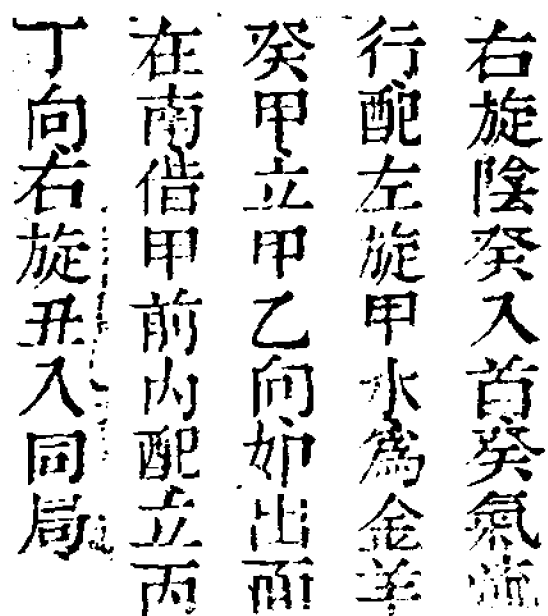 右旋陰癸入首癸氣流
行配左旋甲水爲金羊
癸甲立甲乙向如出面
在南借甲前內配立丙
丁向右旋丑入同局